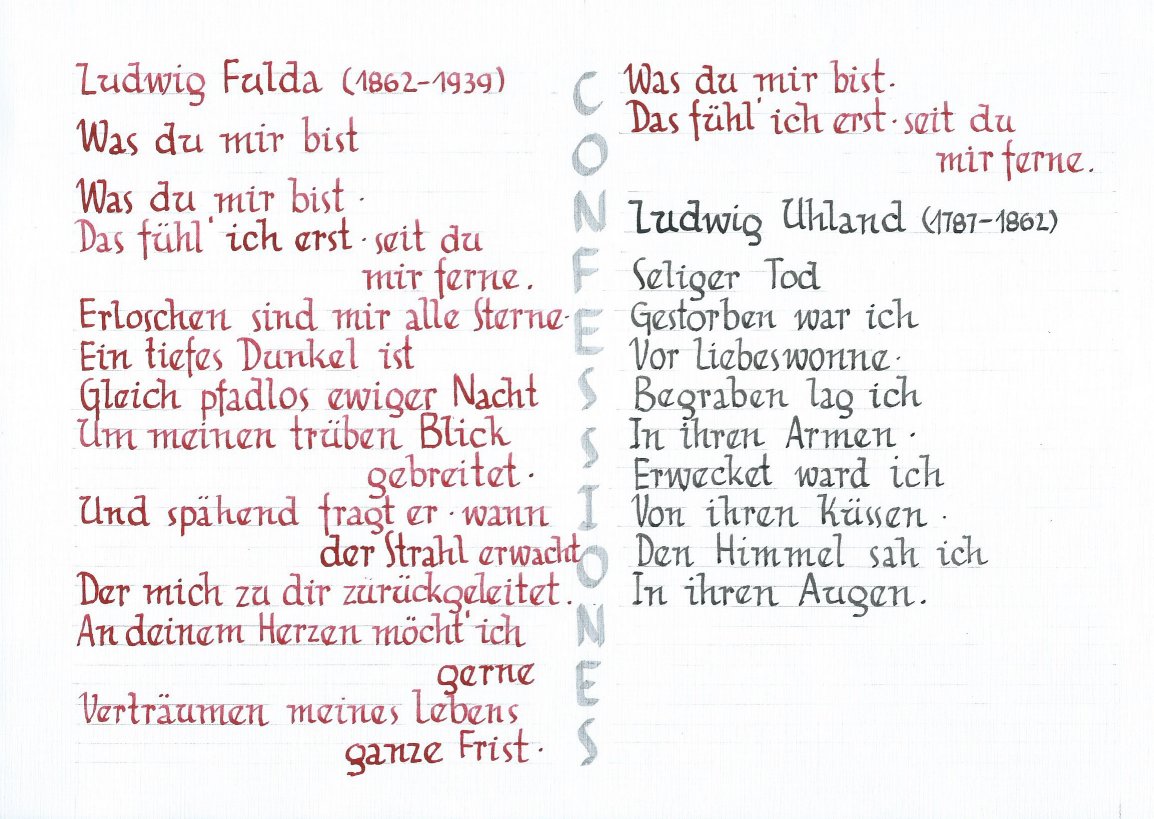 Ludwig Fulda (1862-1939)
Was du mir bist
Was du mir bist ·
Das fühl' ich erst · seit du
mir ferne.
Erloschen sind mir alle Sterne ·
Ein tiefes Dunkel ist
Gleich pfadlos ewiger Nacht
Um meinen trüben Blick
gebreitet ·
Und spähend fragt er · wann
der Strahl erwacht
Der mich zu dir zurückgeleitet.
An deinem Herzen möcht' ich
gerne
Verträumen meines Lebens
ganze Frist ·
CONFESSIONES
Was du mir bist ·
Das fühl' ich erst · seit du
mir ferne.
Ludwig Uhland (1787-1862)
Seliger Tod
Gestorben war ich
Vor Liebeswonne ·
Begraben lag ich
In ihren Armen ·
Erwecket ward ich
Von ihren Küssen ·
Den Himmel sah ich
In ihren Augen.